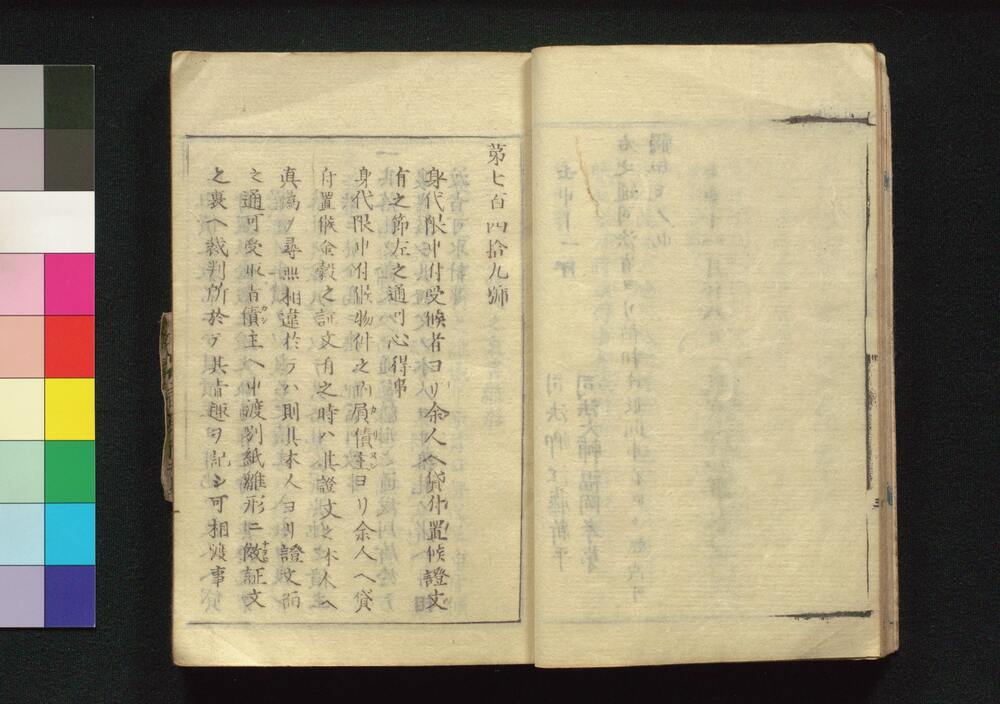 第七百四拾九號
身代限申付受候者ヨリ余人ヘ貸付置候證文
有之節左之通可心得事
身代限申付候物件之内負債主ヨリ余人ヘ貸
付置候金穀之証文有之時ハ其證文之本人ヘ
真偽ヲ尋無相違於テハ則其本人ヨリ證文面
之通可受取旨債主ヘ申渡別紙雛形ニ傚証文
之裏ヘ裁判所於テ其旨趣ヲ記シ可相渡事